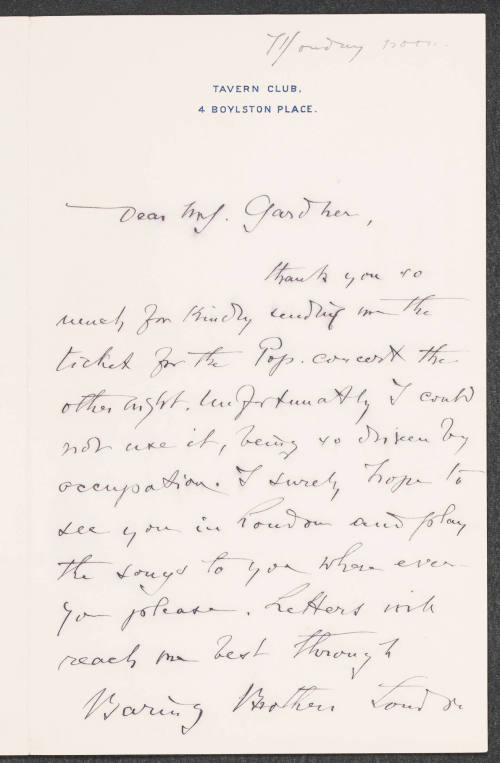 Monday noon.
TAVERN CLUB,
4 BOYLSTON PLACE.
Dear Mrs. Gardner,
thank you so
much for kindly sending me the
ticket for the Pop. concert the
other night. Unfortunately I could
not use it, being so driven by
occupation. I surely hope to
see you in London and play
the songs to you where ever
you please. Letters will
reach me best through
Baring Brothers London